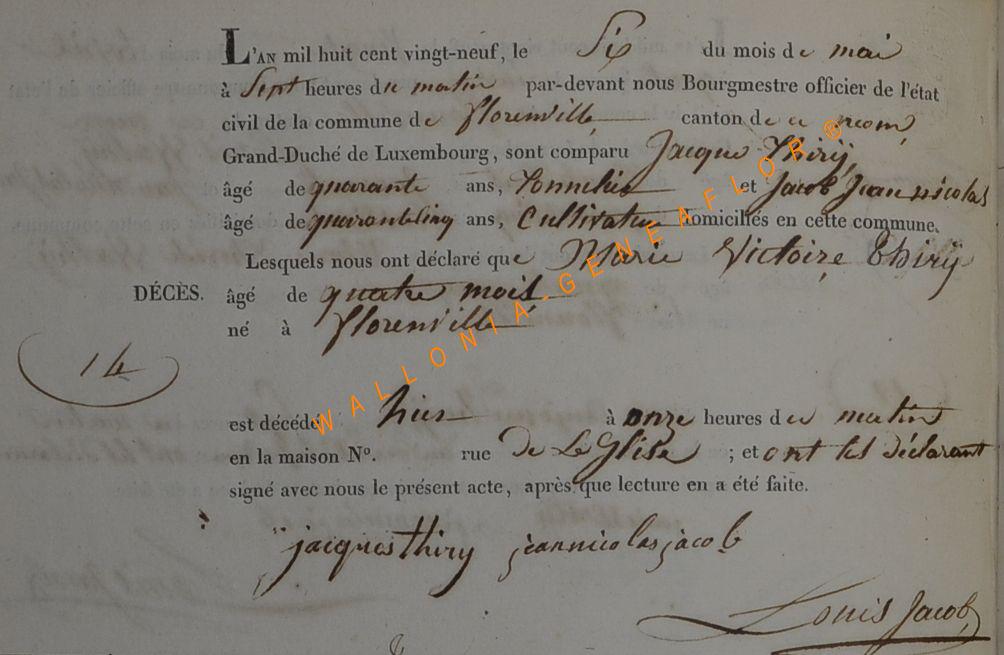 L'AN mil huit cent vingt-neuf, le Six du mois de mai
à Sept heures du matin par-devant nous Bourgmestre officier de l'état
civil de la commune de florenville canton de ce nom
Grand-Duché de Luxembourg, sont comparu Jacque Thirÿ,
âgé de quarante ans, Tonnelier et Jacob Jean nicolas
âgé de quarantcinq ans, Cultivateur domiciliés en cette commune.
Lesquels nous ont déclaré que Marie Victoire Thirÿ
DÉCÈS. âgé de quatre mois
né à florenville
14
est décédé hier à onze heures du matin
en la maison Nº. rue de Le Glise ; et ont les déclarant
signé avec nous le présent acte, après que lecture en a été faite.
jacques thiry jeannicolas jacob
Louis Jacob
WALLONIA.GENEAFLOR®